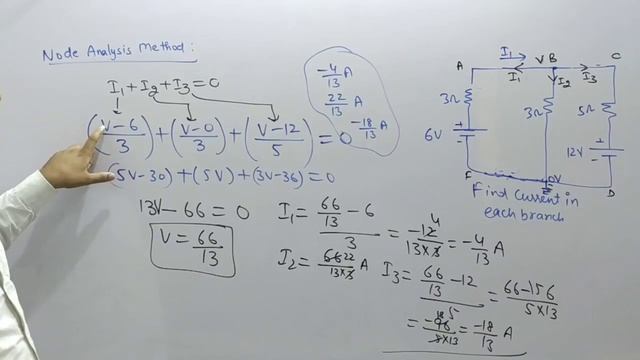 Node Analysis Method :
I₁ + I₂ + I₃ = 0
(V-6/3) + (V-0/3) + (V-12/5) = 0
(5V-30) + (5V) + (3V-36) = 0
13V - 66 = 0
V = 66/13
-4/13 A
22/13 A
-18/13 A
I₁ = (66/13 - 6)/3 = -12 4/13×3 = -4/13 A
I₂ = 66 22/13×3 A
I₃ = (66/13 - 12)/5 = 66-156/5×13
= -90 18/5×13 = -18/13 A
I₁
A
I₁
V B
I₂
I₃
C
3Ω
3Ω
5Ω
6V
+
-
12V
+
-
F
0V
E
D
Find current in
each branch